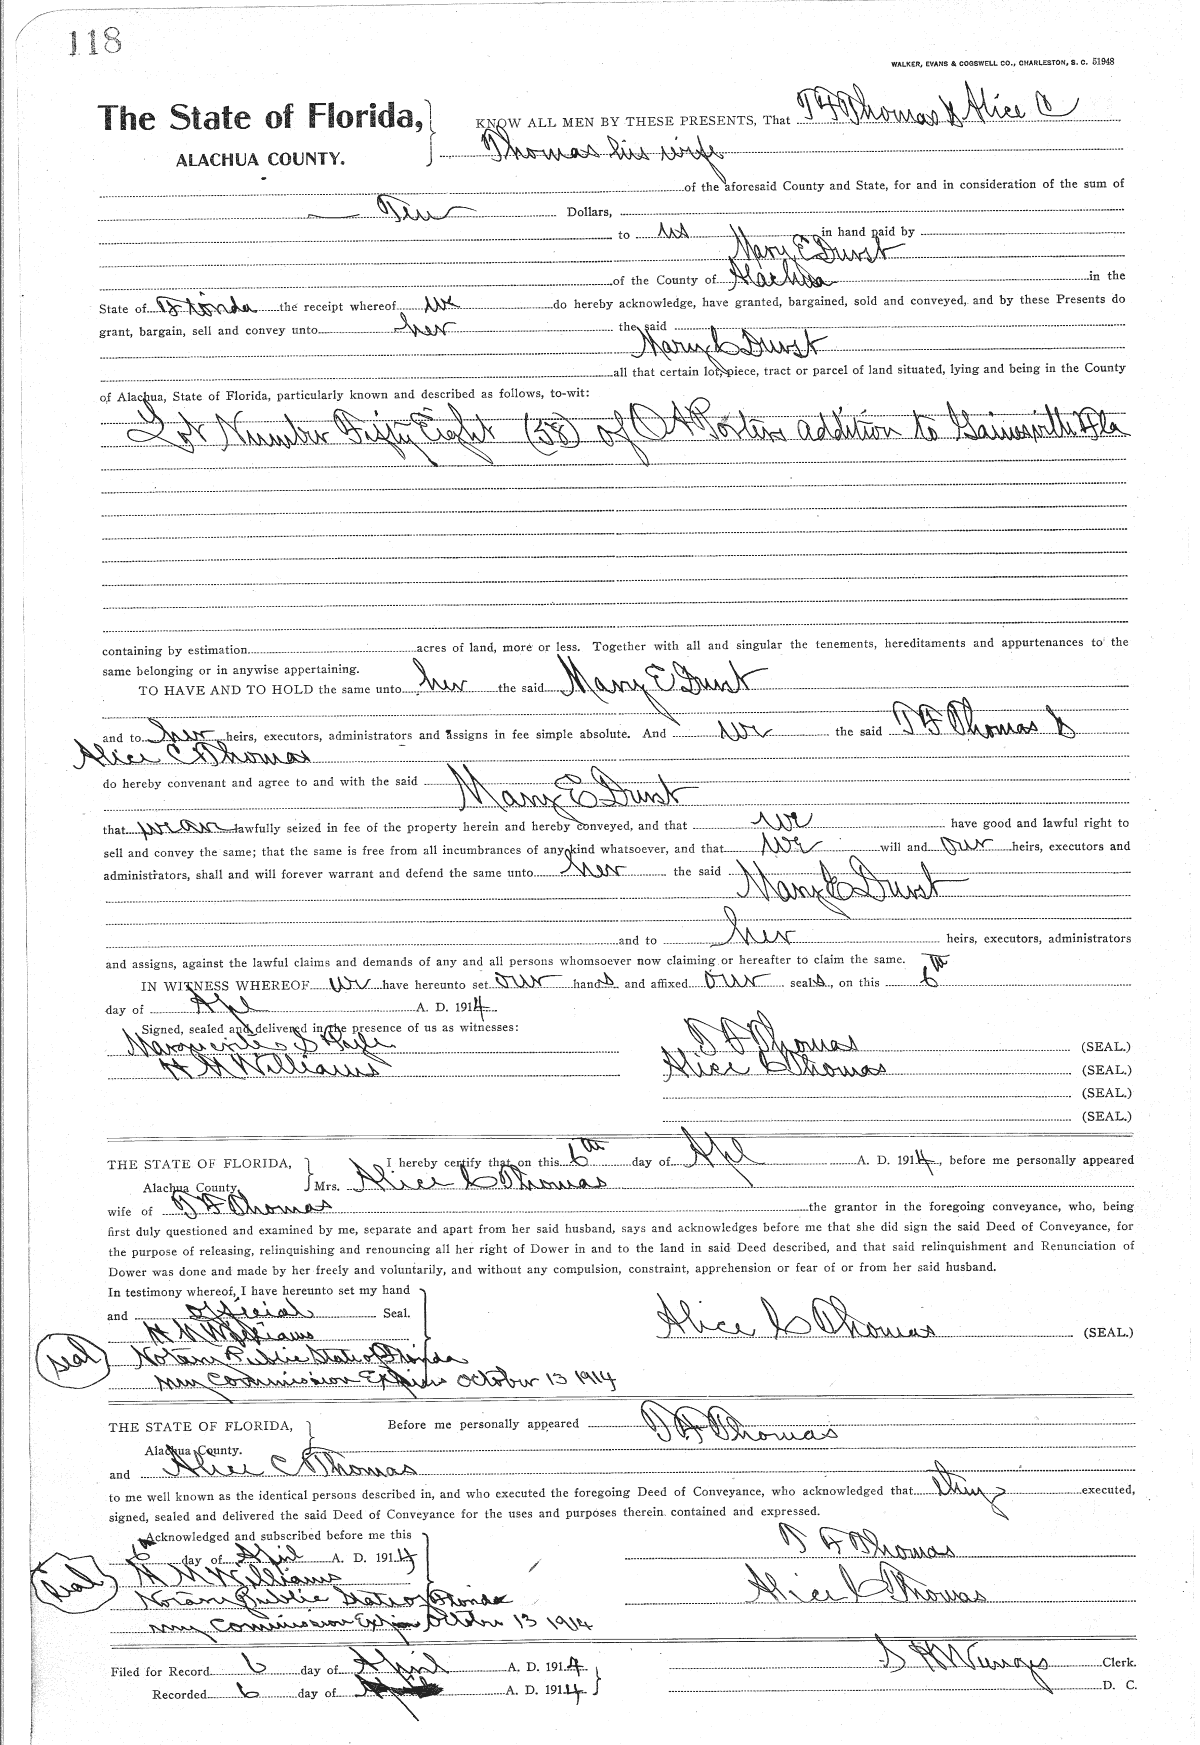 118
WALKER, EVANS & COGSWELL CO., CHARLESTON, S. C. 51948
The State of Florida,
ALACHUA COUNTY.
KNOW ALL MEN BY THESE PRESENTS, That T F Thomas & Alice C
Thomas his wife
of the aforesaid County and State, for and in consideration of the sum of
Ten Dollars,
to us in hand paid by
Mary E Durst
of the County of Alachua in the
State of Florida the receipt whereof we do hereby acknowledge, have granted, bargained, sold and conveyed, and by these Presents do
grant, bargain, sell and convey unto her the said
Mary E Durst
all that certain lot, piece, tract or parcel of land situated, lying and being in the County
of Alachua, State of Florida, particularly known and described as follows, to-wit:
Lot Number Fifty Eight (58) of O A Porters addition to Gainesville Fla
containing by estimation acres of land, more or less. Together with all and singular the tenements, hereditaments and appurtenances to the
same belonging or in anywise appertaining.
TO HAVE AND TO HOLD the same unto her the said Mary E Durst
and to her heirs, executors, administrators and assigns in fee simple absolute. And we the said T F Thomas &
Alice C Thomas
do hereby convenant and agree to and with the said Mary E Durst
that we are lawfully seized in fee of the property herein and hereby conveyed, and that we have good and lawful right to
sell and convey the same; that the same is free from all incumbrances of any kind whatsoever, and that we will and our heirs, executors and
administrators, shall and will forever warrant and defend the same unto her the said Mary E Durst
and to her heirs, executors, administrators
and assigns, against the lawful claims and demands of any and all persons whomsoever now claiming or hereafter to claim the same.
IN WITNESS WHEREOF we have hereunto set our hands and affixed our seals, on this 6th
day of Apl A. D. 1914
Signed, sealed and delivered in the presence of us as witnesses:
Marguerite S
H M Williams
T F Thomas (SEAL.)
Alice C Thomas (SEAL.)
(SEAL.)
(SEAL.)
THE STATE OF FLORIDA, I hereby certify that on this 6th day of Apl A. D. 1914, before me personally appeared
Alachua County. Mrs. Alice C Thomas
wife of T F Thomas the grantor in the foregoing conveyance, who, being
first duly questioned and examined by me, separate and apart from her said husband, says and acknowledges before me that she did sign the said Deed of Conveyance, for
the purpose of releasing, relinquishing and renouncing all her right of Dower in and to the land in said Deed described, and that said relinquishment and Renunciation of
Dower was done and made by her freely and voluntarily, and without any compulsion, constraint, apprehension or fear of or from her said husband.
In testimony whereof, I have hereunto set my hand
and official Seal.
H M Williams
Alice C Thomas (SEAL.)
seal Notary Public State of Florida
my Commission Expires October 13 1914
THE STATE OF FLORIDA, Before me personally appeared T F Thomas
Alachua County.
and Alice C Thomas
to me well known as the identical persons described in, and who executed the foregoing Deed of Conveyance, who acknowledged that they executed,
signed, sealed and delivered the said Deed of Conveyance for the uses and purposes therein contained and expressed.
Acknowledged and subscribed before me this
6th day of April A. D. 1914
T F Thomas
seal H M Williams
Alice C Thomas
Notary Public State of Florida
my Commission Expires October 13 1914
Filed for Record 6 day of April A. D. 1914
S H Wienges Clerk.
Recorded 6 day of April A. D. 1914
D. C.